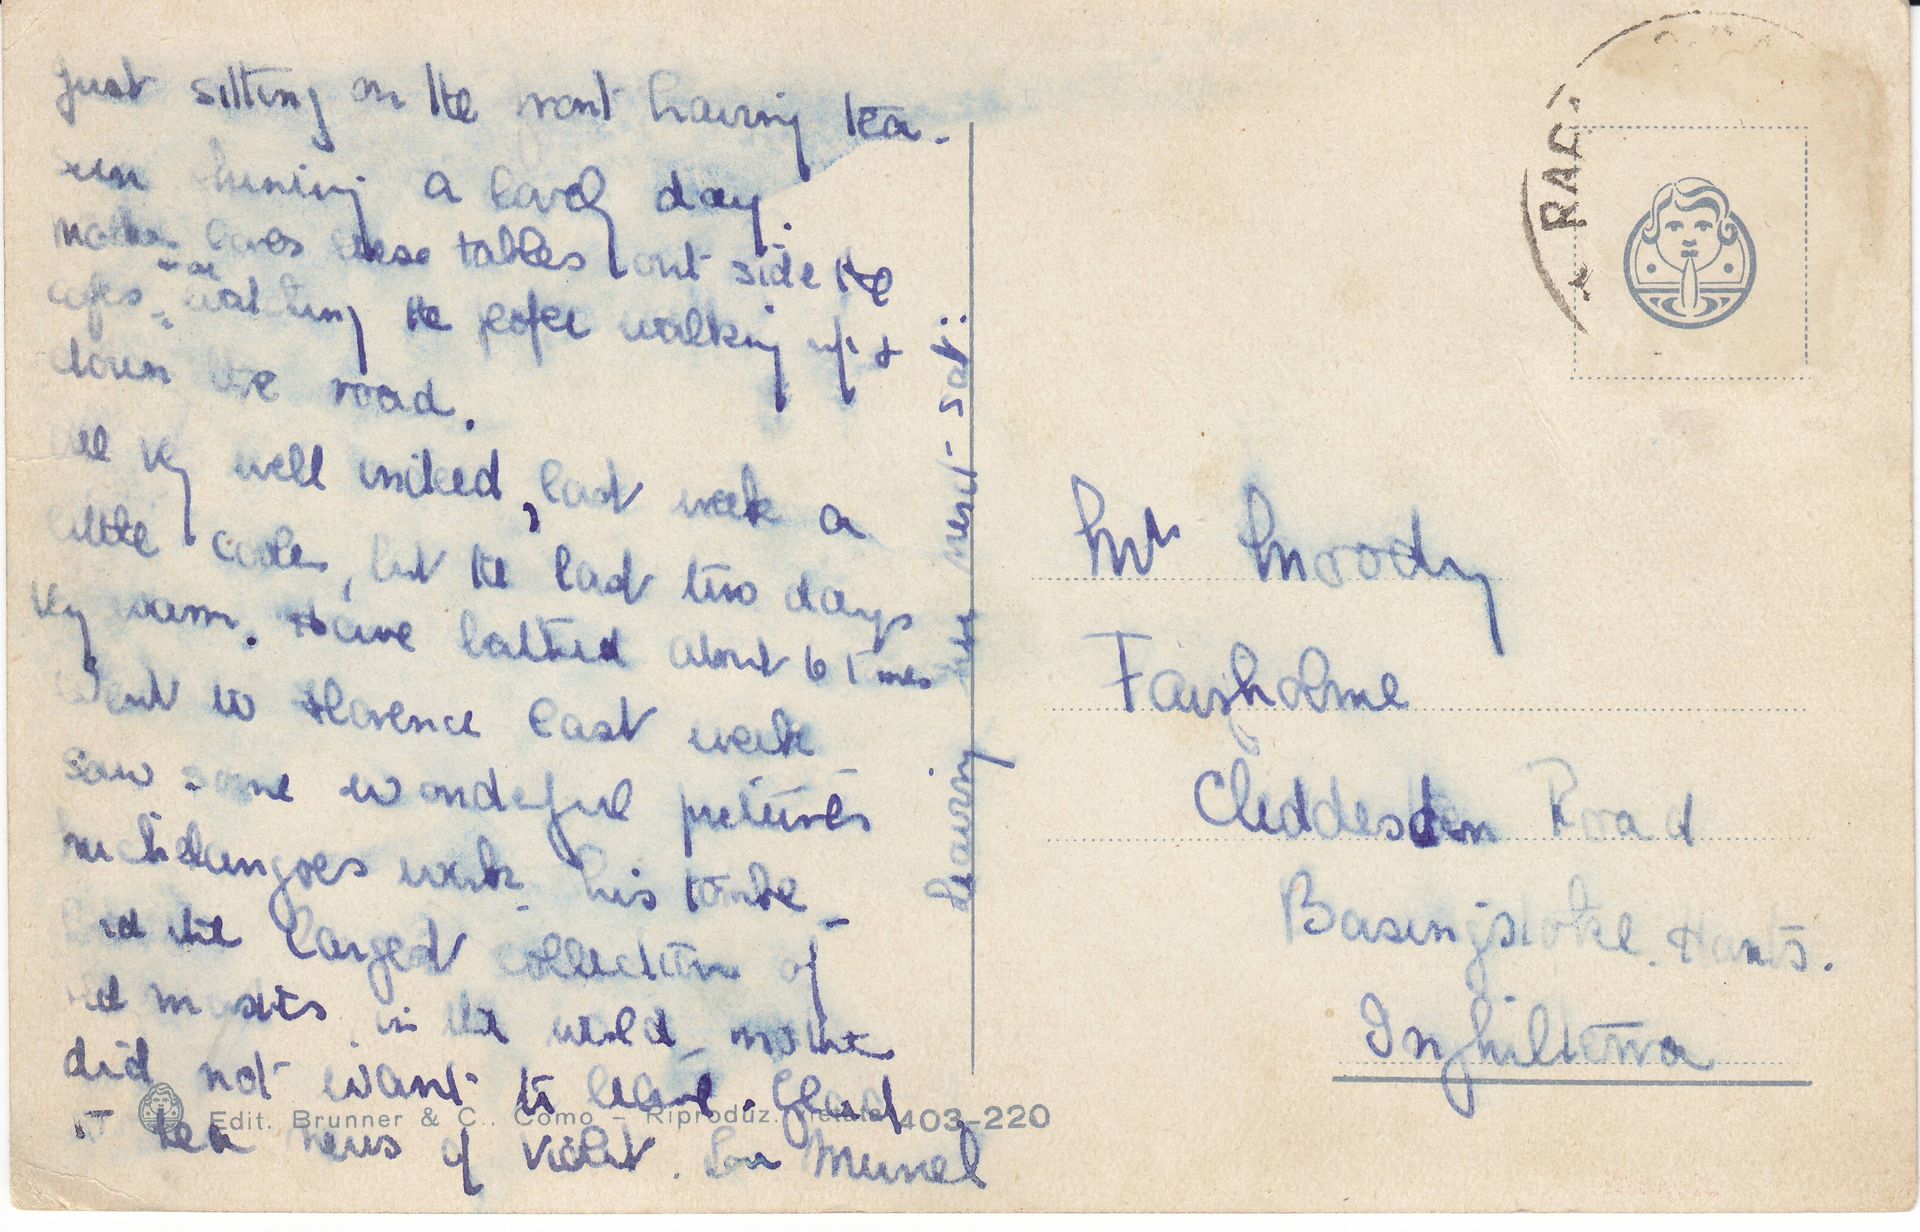 Just sitting on the front having tea.
sun shining a lovely day.
mother loves these tables out side the
cafes, watching the people walking up &
down the road.
all vy well indeed, last week a
little cooler, but the last two days
vy warm. Have bathed about 6 times
Went to Florence last week
saw some wonderful pictures
michelangoes work - his tombe -
and the largest collection of
old masters in the world - mother
did not want to leave. Glad
to hear news of Violet. Love Muriel
leaving here next - sat:
Mrs Moody
Fairholme
Cliddesden Road
Basingstoke. Hants.
Inghilterra
Edit. Brunner & C., Como - Riproduz. vietata 403-220